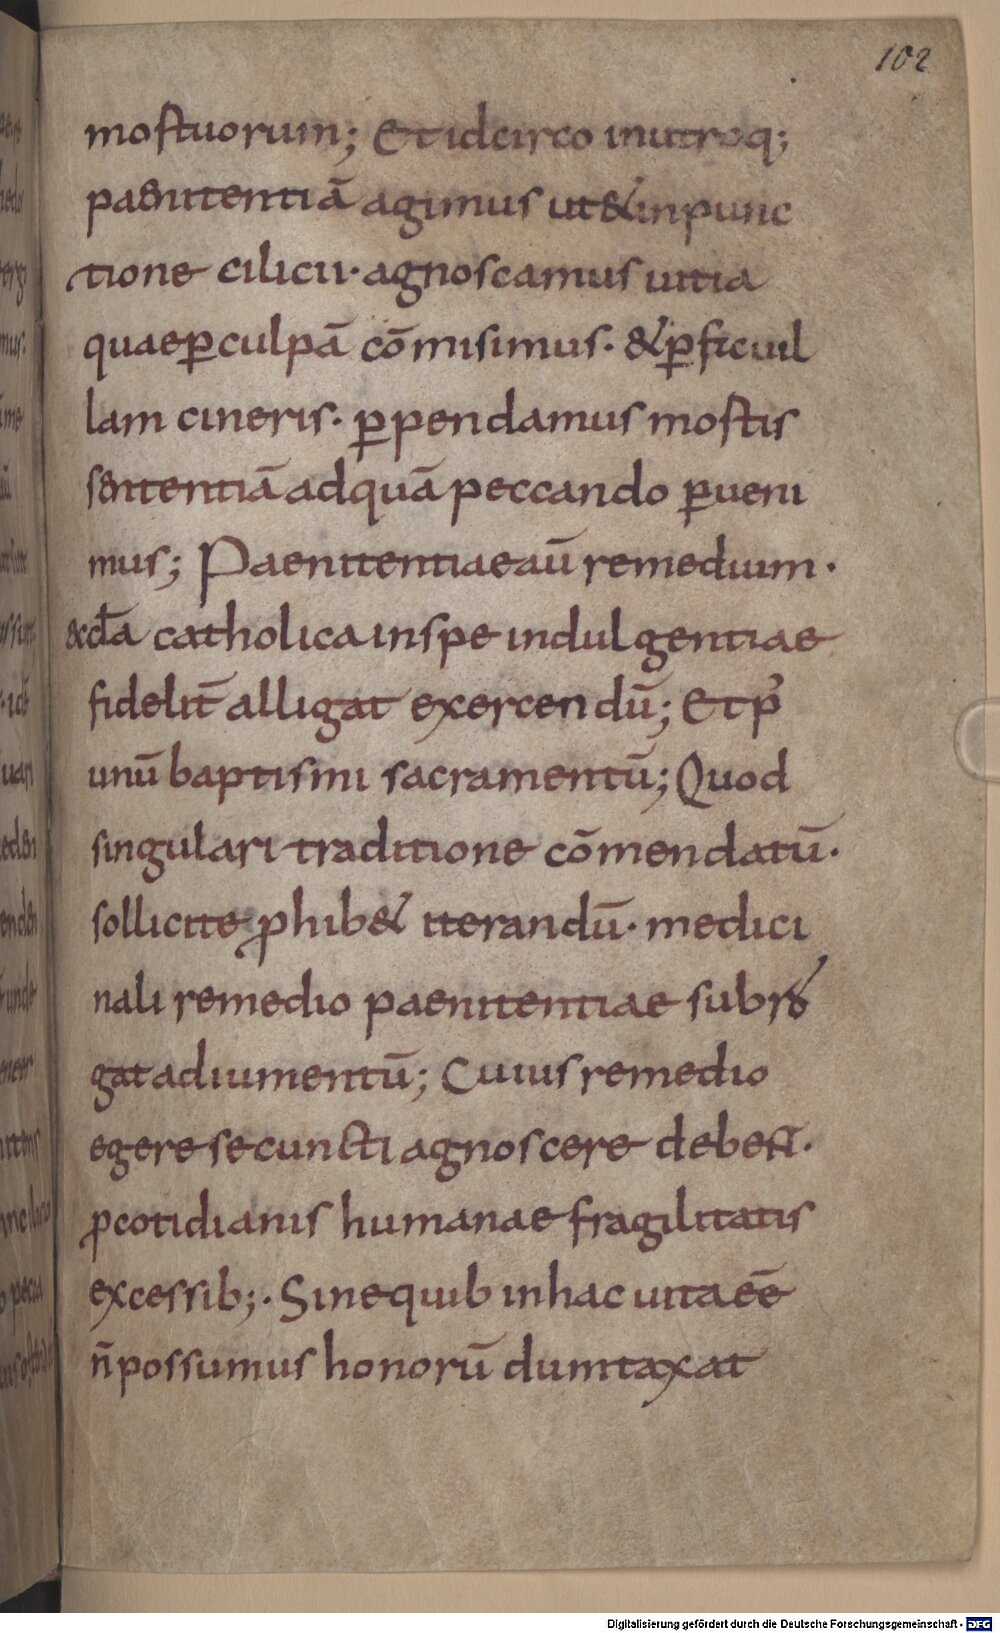 102
mortuorum; Et idcirco inutroq;
paenitentiā agimus ut &inpunc
tione cilicii· agnoscamus uitia
quaeꝑculpā cōmisimus· &ꝑficuil
lam cineris· ꝑpendamus mortis
sententiā adquā peccando ꝑueni
mus; Paenitentiae aū remedium·
&ccła catholica inspe indulgentiae
fidelit̄ alligat exercendū; Et p̉
unū baptismi sacramentū; Quod
singulari traditione cōmendatū·
sollicite ꝓhib& iterandū· medici
nali remedio paenitentiae subro
gat adiumentū; Cuius remedio
egere se cuncti agnoscere debent·
ꝓcotidianis humanae fragilitatis
excessib;· Sine quib in hac uita eē
n̄ possumus honorū dumtaxat
Digitalisierung gefördert durch die Deutsche Forschungsgemeinschaft - DFG